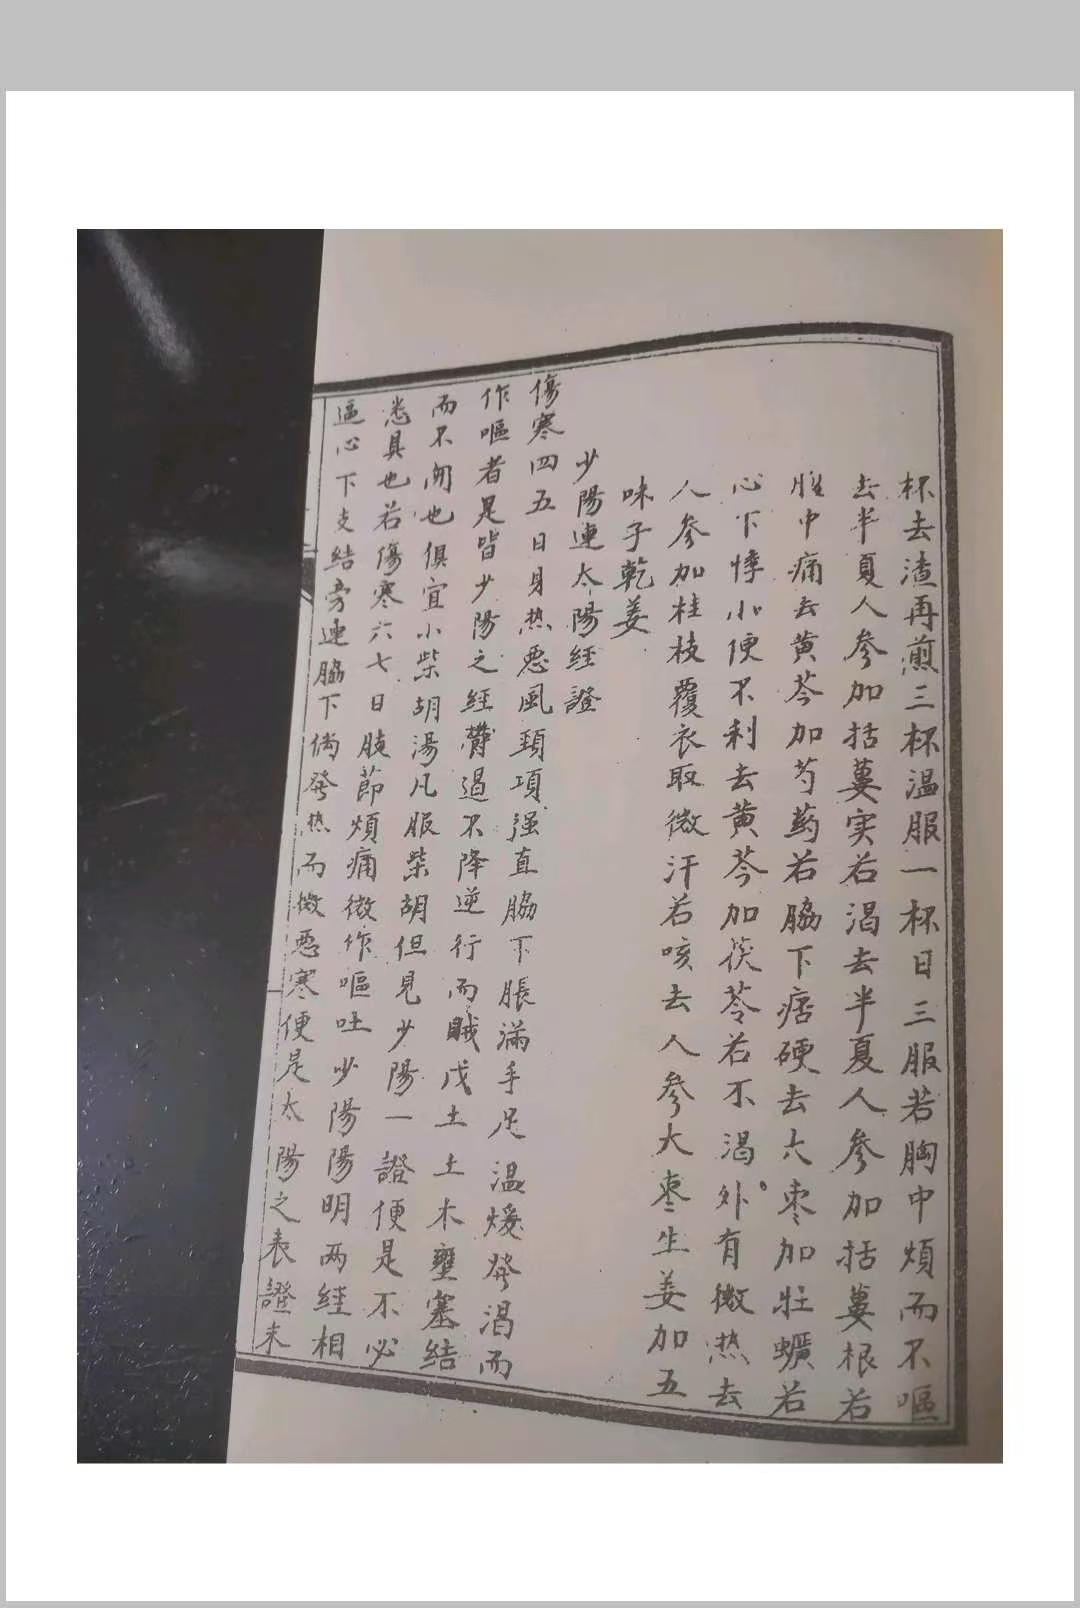 杯去渣再煎三杯温服一杯日三服若胸中煩而不嘔
去半夏人參加括蔞实若渴去半夏人參加括蔞根若
腹中痛去黄芩加芍葯若脇下痞硬去大枣加牡蠣若
心下悸小便不利去黄芩加茯苓若不渴外有微热去
人參加桂枝覆衣取微汗若咳去人參大枣生姜加五
味子乾姜
少陽連太陽經證
傷寒四五日身热恶風頚項强直脇下脹滿手足温煖發渴而
作嘔者是皆少陽之經鬱遏不降逆行而贼戊土土木壅塞结
而不開也俱宜小柴胡湯凡服柴胡但見少陽一證便是不必
悉具也若傷寒六七日肢節煩痛微作嘔吐少陽陽明两經相
逼心下支結旁連脇下倘發热而微恶寒便是太陽之表證未